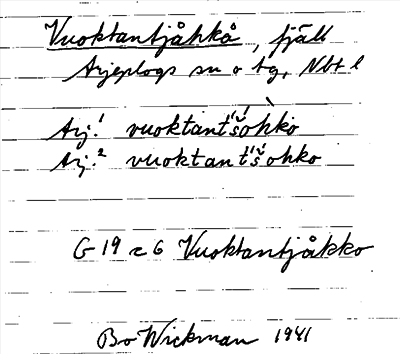 Vuoktantjåhkå, fjäll
Arjeplogs sn o tg, Nbt l
Arj.¹ vuoktant́š́ŏh̀kò
Arj.² vuoktant́š́ohko
G 19 c 6 Vuoktantjåkko
Bo Wickman 1941